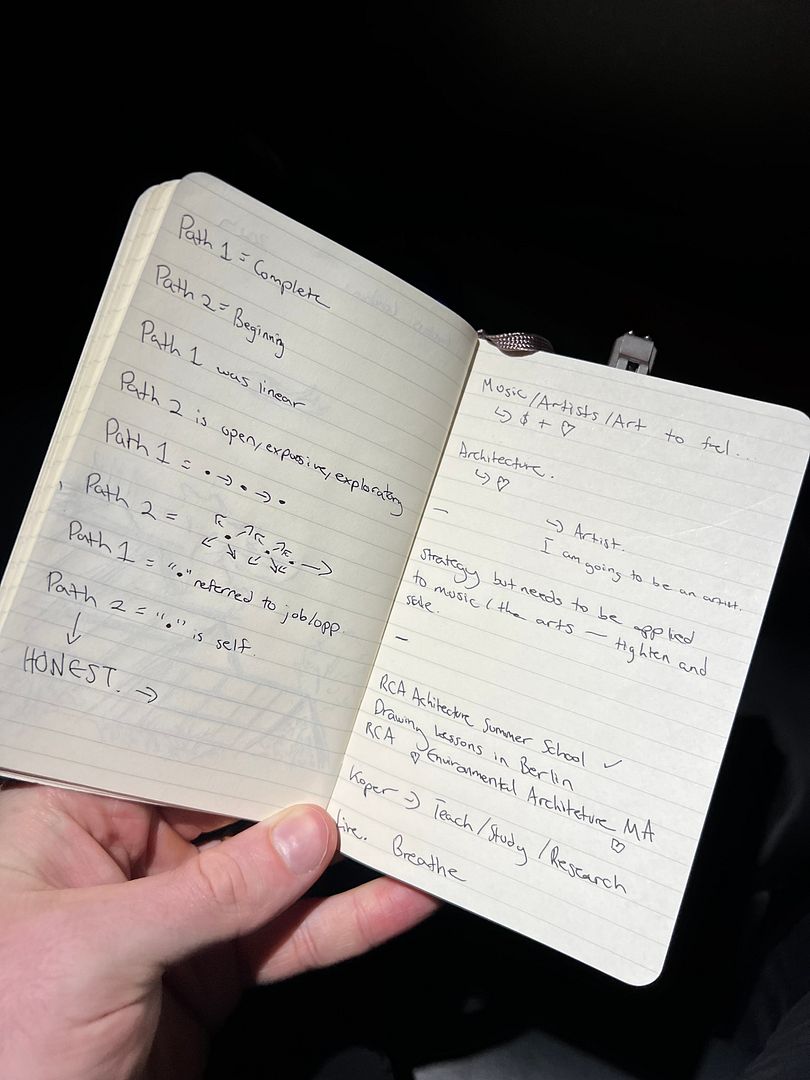 Path 1 = Complete
Path 2 = Beginning
Path 1 was linear
Path 2 is open, expansive, exploratory
Path 1 = • → • → •
Path 2 =
Path 1 = "•" referred to job/opp.
Path 2 = "•" is self.
↓
HONEST. →
Music/Artists/Art to feel...
↳ $ + ♡
Architecture.
↳ ♡
—
↳ Artist.
I am going to be an artist.
Strategy but needs to be applied
to music/the arts — tighten and
—
RCA Achitecture Summer School ✓
Drawing Lessons in Berlin
RCA ♡ Environmental Architeture MA
♡
→ Teach/Study/Research
Breathe